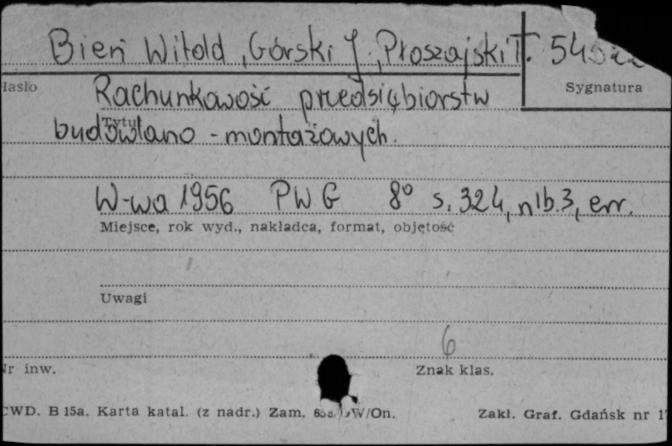 Bień Witold, Górski J., Płoszajski T.
Hasło
Sygnatura
Rachunkowość przedsiębiorstw
Tytuł
budowlano-montażowych.
W-wa 1956 PWG 8° s. 324, nlb. 3, err.
Miejsce, rok wyd., nakładca, format, objętość
Uwagi
6
Nr inw.
Znak klas.
CWD. B 15a. Karta katal. (z nadr.) Zam. /On.
Zakł. Graf. Gdańsk nr